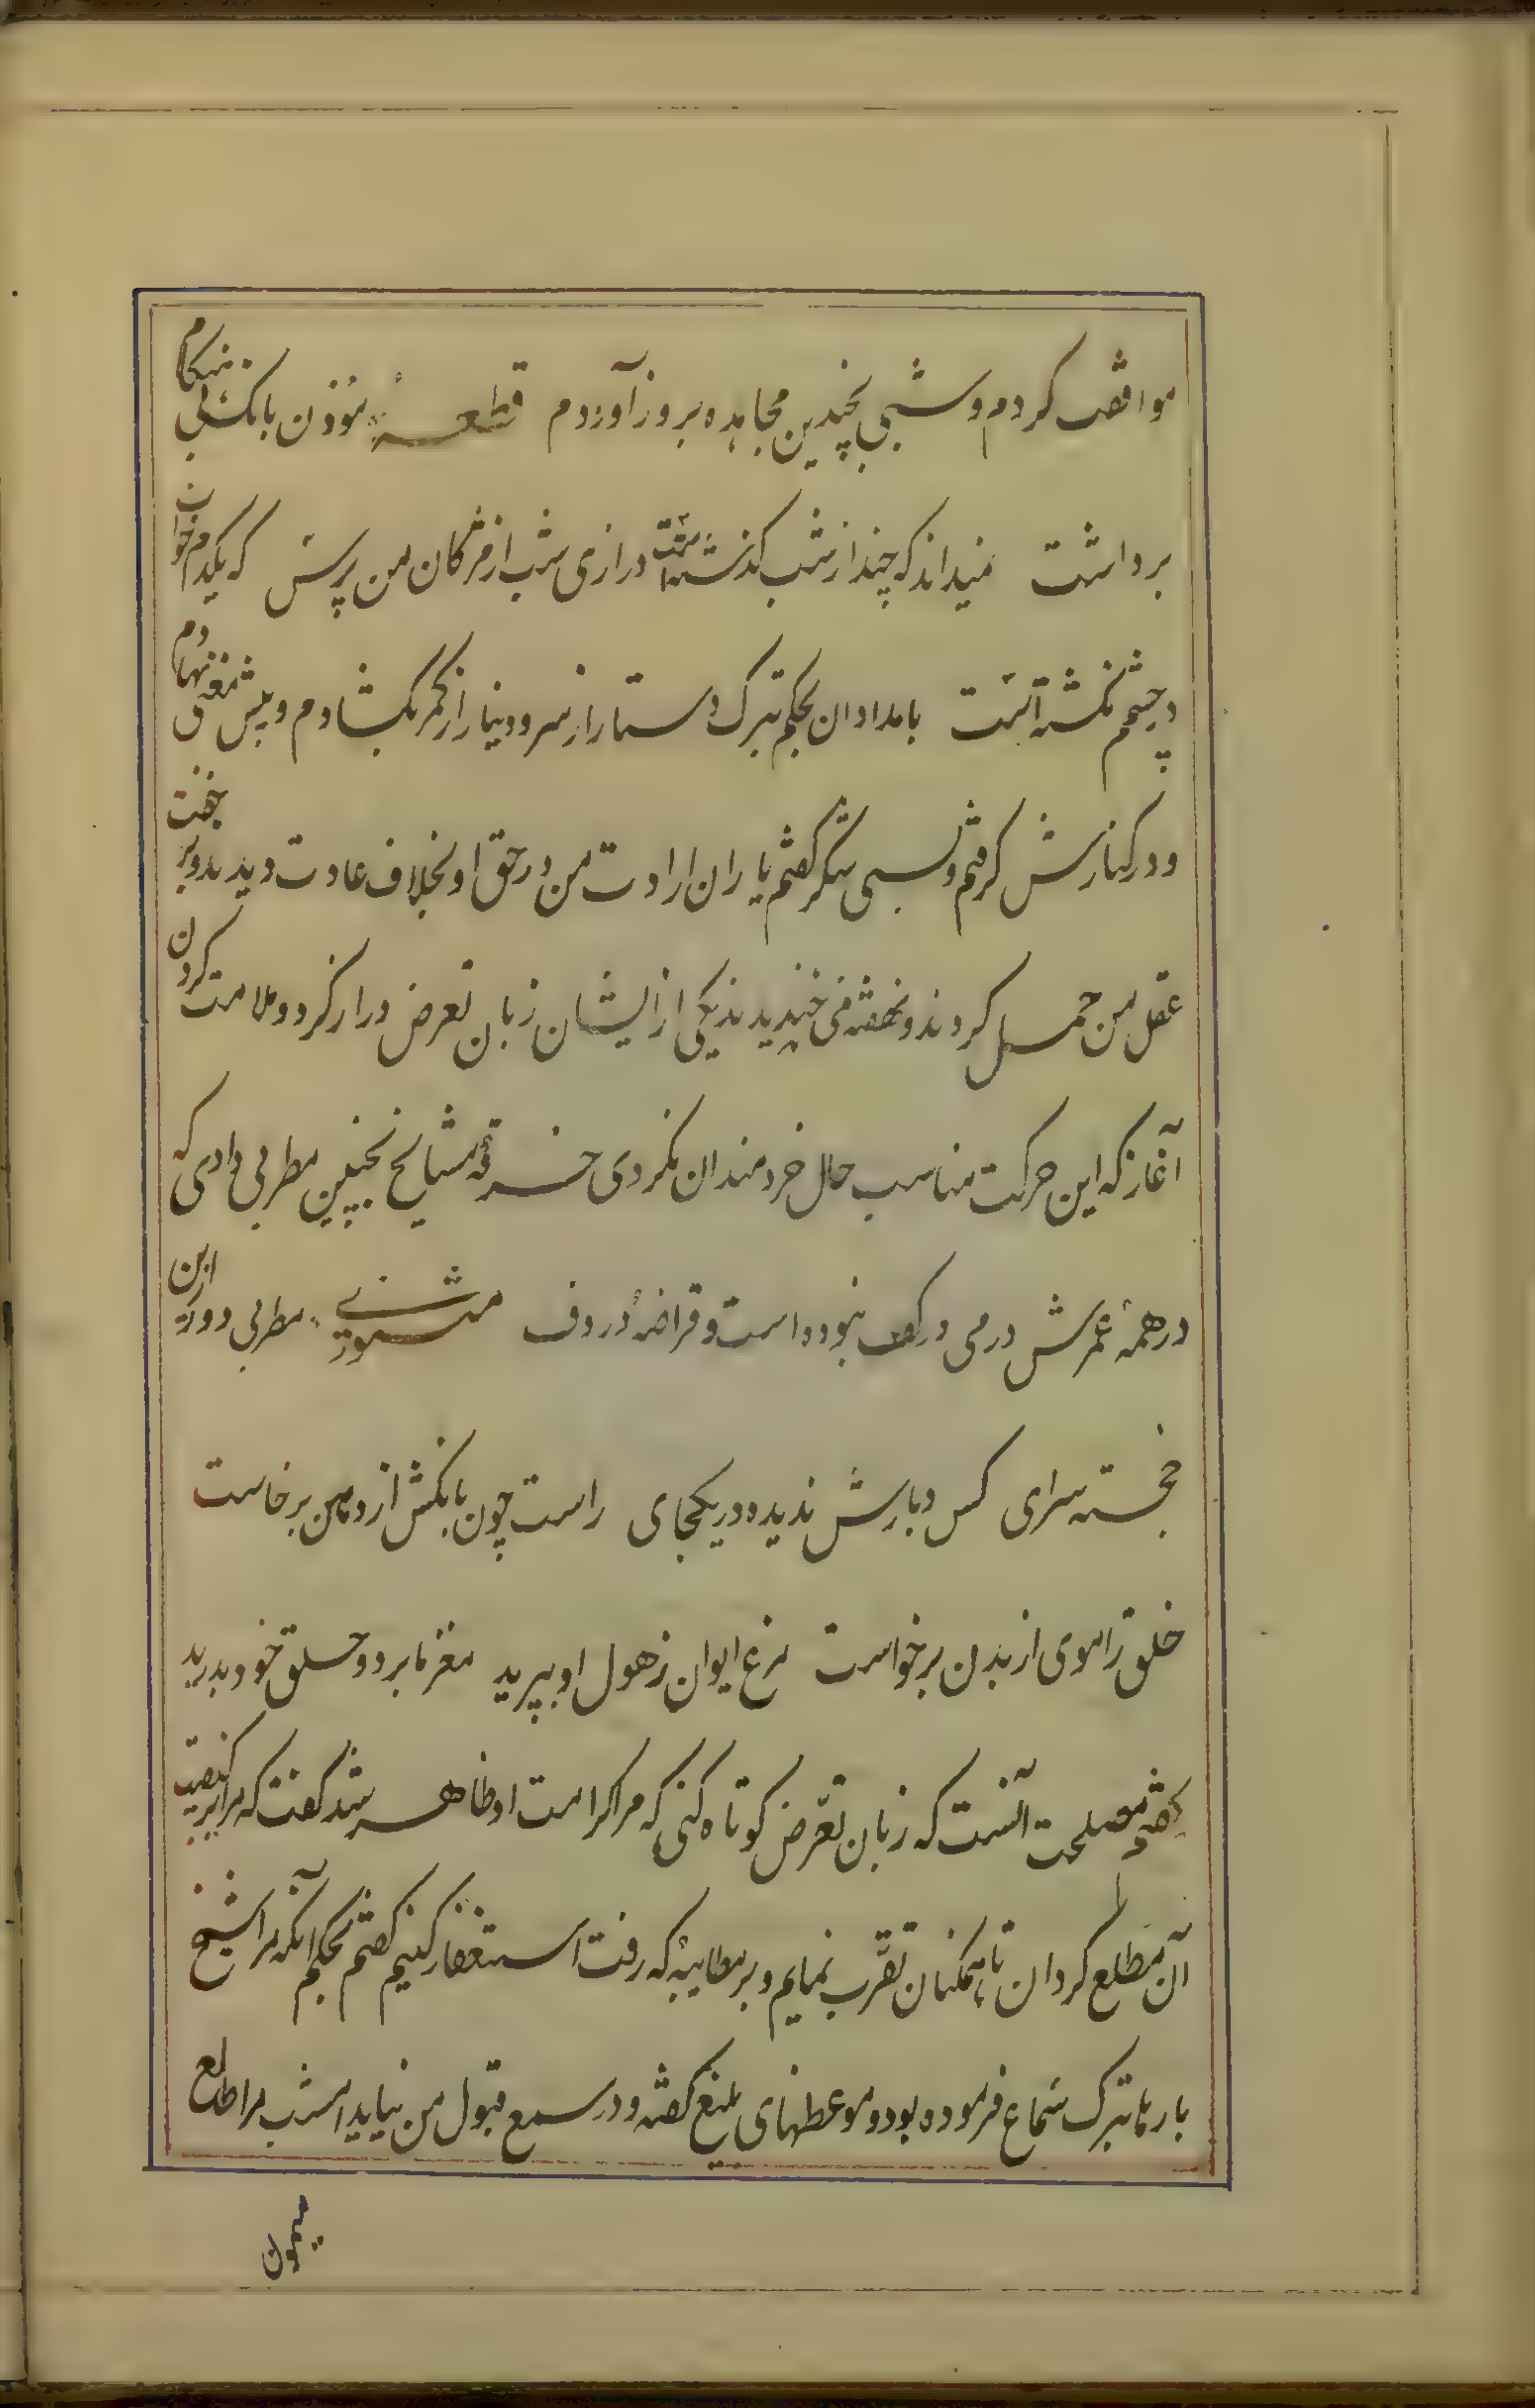 موافقت کردم و شبی بچندین مجاهده بروز آوردم قطعه مؤذن بانک بی هنکام
برداشت نمیداند که چند از شب کذشته است درازی شب از مژکان من پرس که یکدم خواب
در چشم نکشته است بامدادان بحکم تبرک دستار از سر و دینار از کمر بکشادم و پیش مغنی نهادم
و در کنارش کرفتم و بسی شکر کفتم یاران ارادت من در حق او بخلاف عادت دیدند و بر خفت
عقل من حمل کردند و نهفته می خندیدند یکی از ایشان زبان تعرض دراز کرد و ملامت کردن
آغاز که این حرکت مناسب حال خردمندان نکردی خرقه مشایخ بچنین مطربی دادی که
در همهٔ عمرش درمی در کف نبوده است و قراضهٔ در دف مثنوی مطربی دور ازین
خجسته سرای کس دو بارش ندیده در یکجای راست چون بانکش از دهن برخاست
خلق را موی از بدن برخواست مرغ ایوان ز هول او بپرید مغز ما برد و حلق خود بدرید
کفتم مصلحت آنست که زبان تعرّض کوتاه کنی که مرا کرامت او ظاهر شد کفت که مرا بر کیفیت
آن مطلع کردان تا همکنان تقرّب نمایم و بر مطایبهٔ که رفت استغفار کنیم کفتم بحکم آنکه مرا شیخ
بارها بترک سماع فرموده بود و موعظهای بلیغ کفته و در سمع قبول من نیاید امشب مرا طالع
میمون